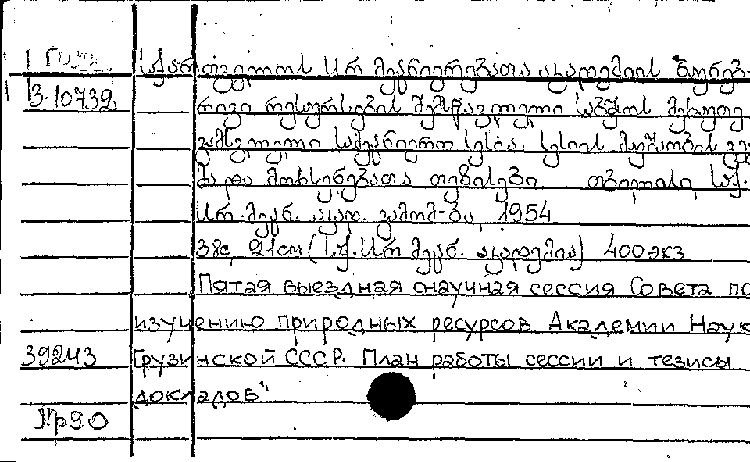 საქართველოს სსრ მეცნიერებათა აკადემიის ბუნებ-
3-10732 რივი რესურსების შემსწავლელი საბჭოს მეხუთე
გამსვლელი სამეცნიერო სესია. სესიის მუშაობის გე
მა და მოხსენებათა თეზისები თბილისი, საქ.
სსრ მეცნ. აკად. გამომ-ბა, 1954
38с, 21см (საქ. სსრ მეცნ. აკადემია) 400экз
Пятая выездная научная сессия Совета по
изучению природных ресурсов Академии Наук
39243 Грузинской ССР. План работы сессии и тезисы
докладов"